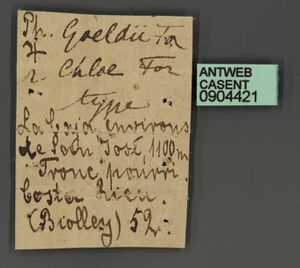 Ph. Goeldii For
☿
r. Chloe For
type
La Caja environs
de San José, 1100 m
Tronc pourri
Costa Rica.
(Biolley) 52.
ANTWEB
CASENT
0904421